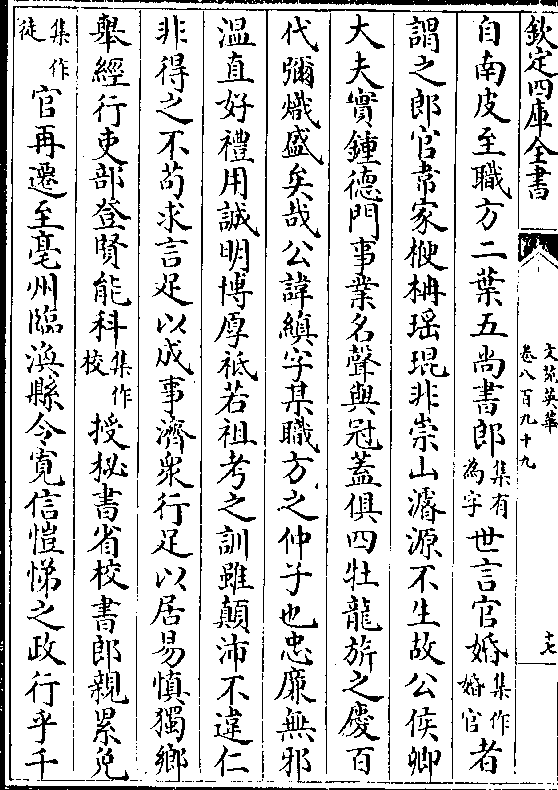 欽定四庫全書
文苑英華
卷八百九十九
十七
自南皮至職方二葉五尚書郎集有為字世言官婚集作婚官者
謂之郎官韋家楩柟瑶琨非崇山濬源不生故公侯卿
大夫實鍾德門事業名聲與冠蓋俱四牡龍旂之慶百
代彌熾盛矣哉公諱縝字某職方之仲子也忠廉無邪
温直好禮用誠明博厚祗若祖考之訓雖顛沛不違仁
非得之不苟求言足以成事濟衆行足以居易慎獨鄉
舉經行吏部登賢能科集作校授秘書省校書郎親累免
集作徒官再遷至亳州臨渙縣令寛信愷悌之政行乎千